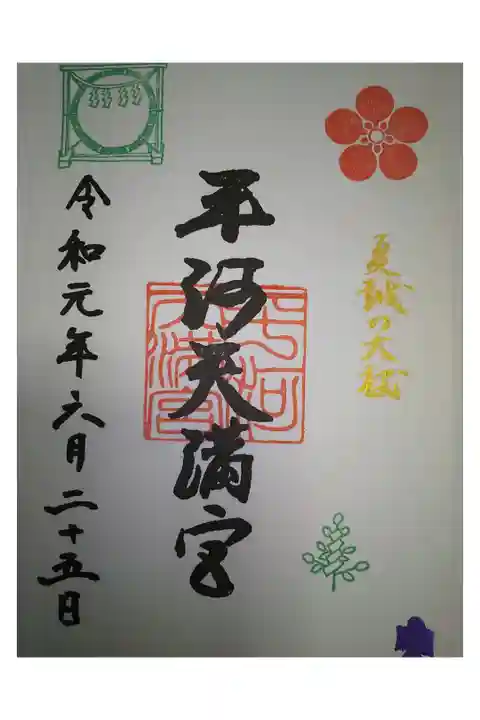 夏越の大祓
平河天満宮
平河
天満宮
令和元年六月二十五日